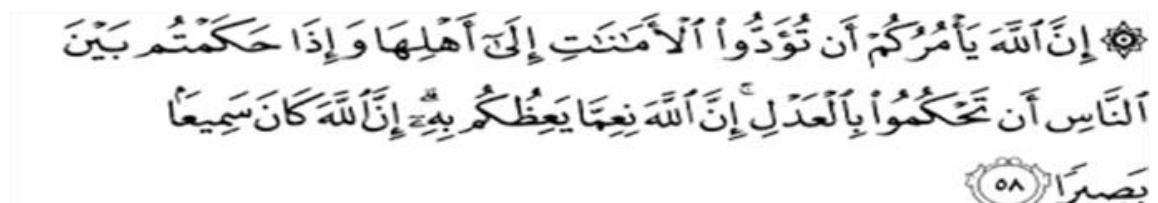 ۞ إِنَّ ٱللَّهَ يَأْمُرُكُمْ أَن تُؤَدُّوا۟ ٱلْأَمَـٰنَـٰتِ إِلَىٰٓ أَهْلِهَا وَإِذَا حَكَمْتُم بَيْنَ
ٱلنَّاسِ أَن تَحْكُمُوا۟ بِٱلْعَدْلِ ۚ إِنَّ ٱللَّهَ نِعِمَّا يَعِظُكُم بِهِۦٓ ۗ إِنَّ ٱللَّهَ كَانَ سَمِيعًۢا
بَصِيرًا ٥٨